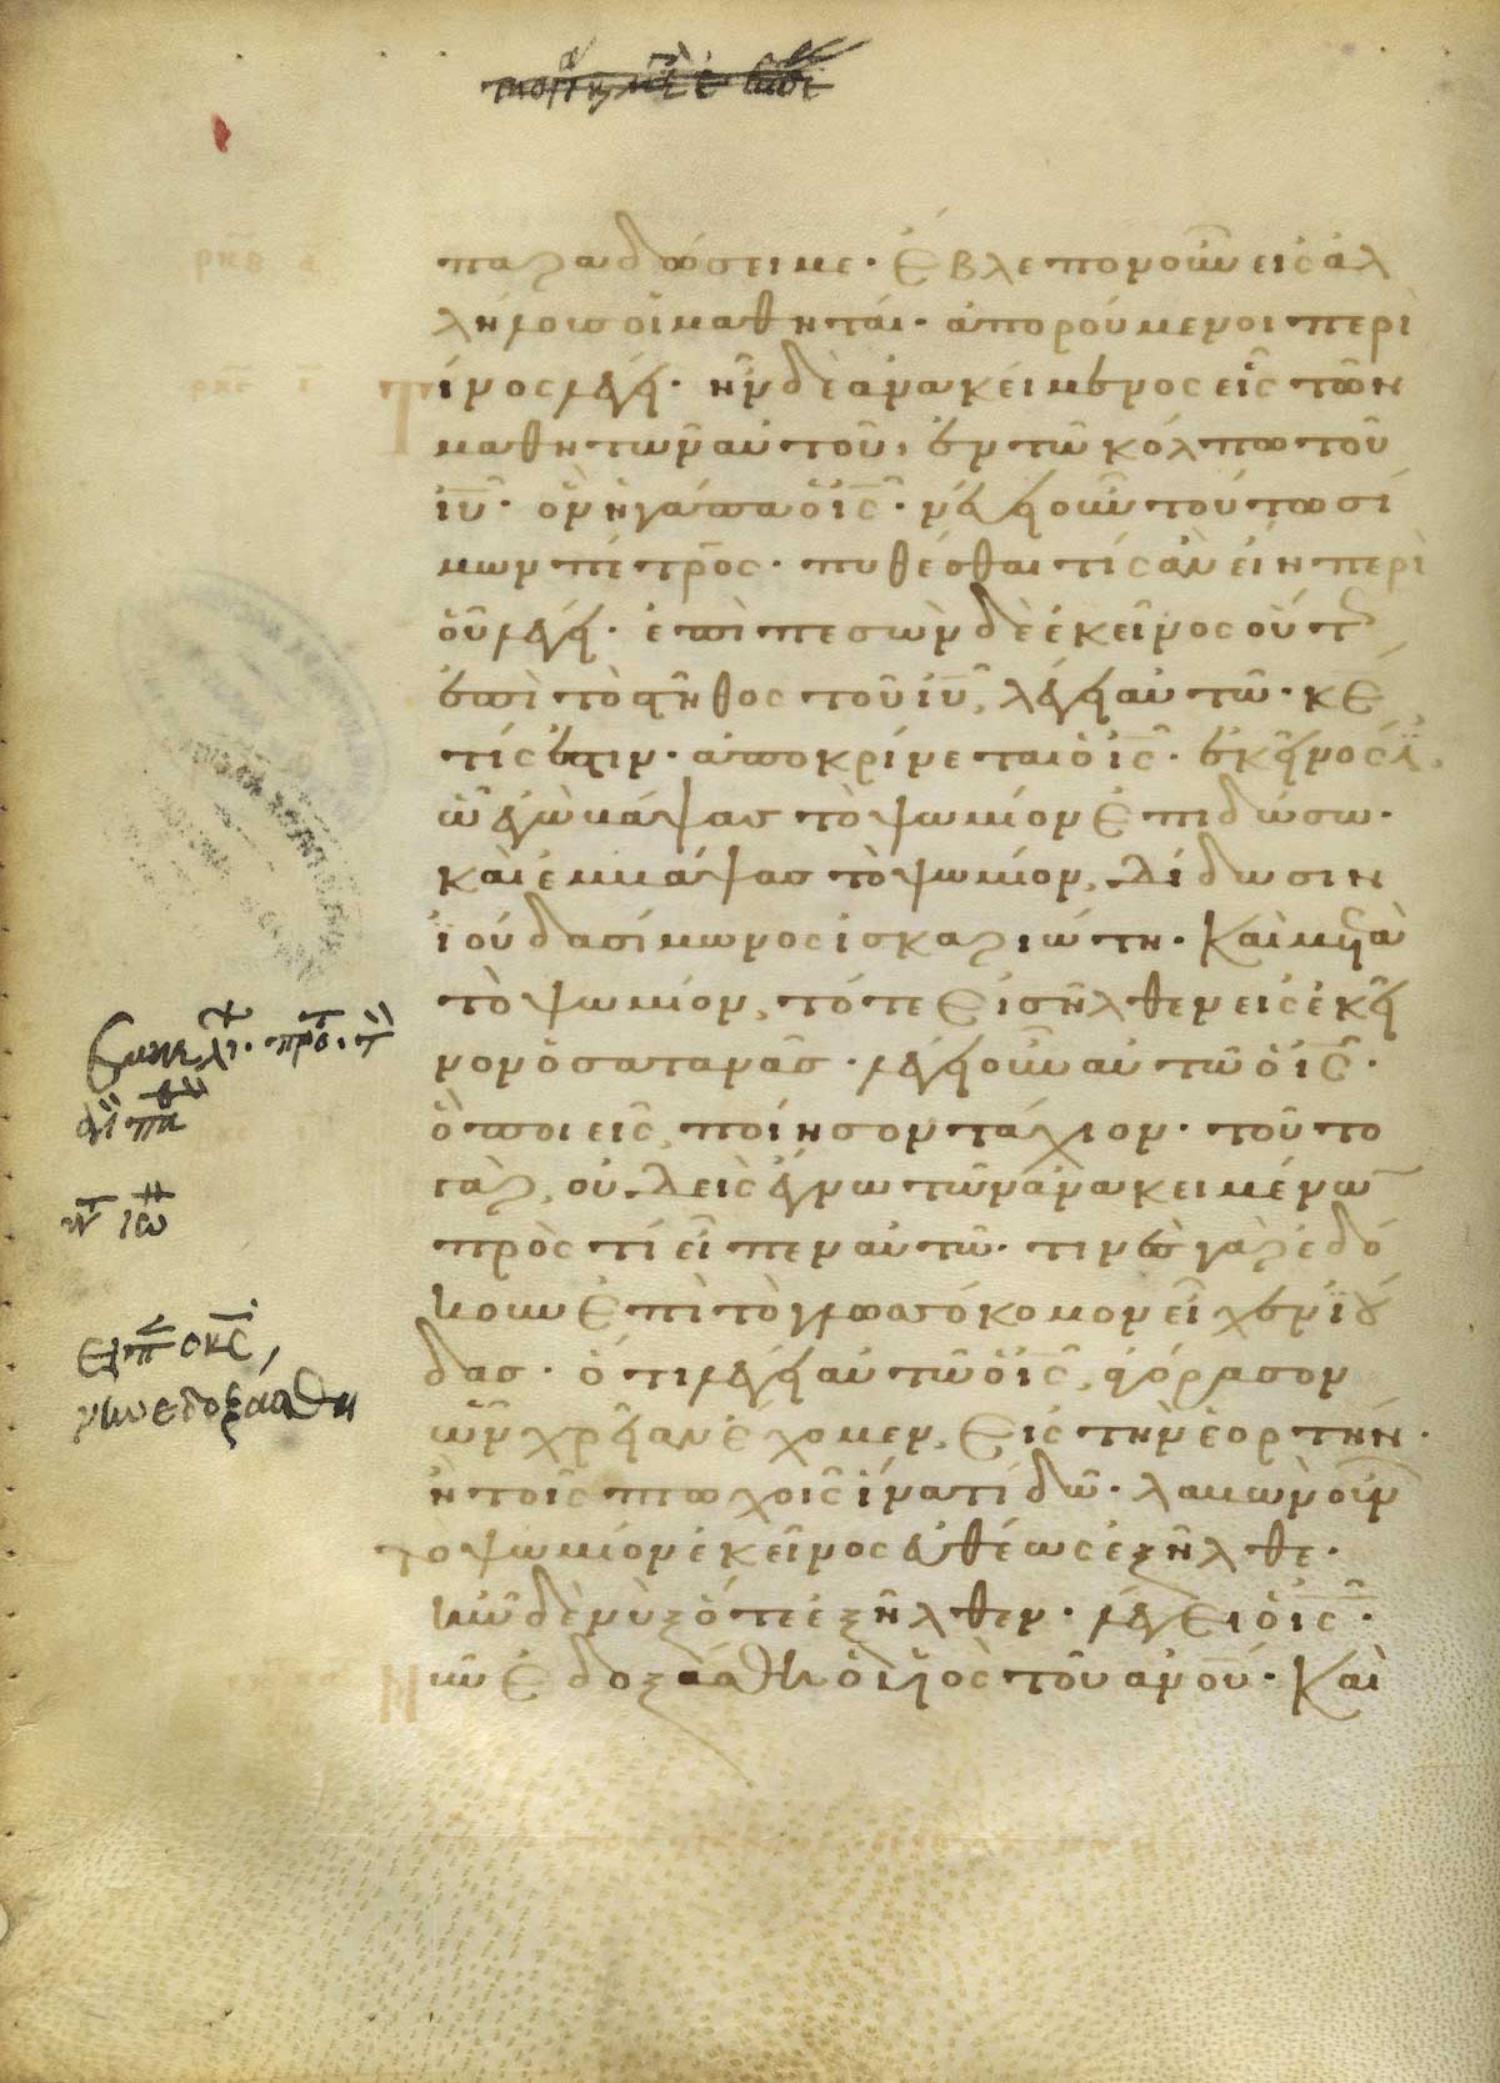 παραδώσει με· ἔβλεπον οὖν εἰς ἀλ
λήλους οἱ μαθηταί· ἀπορούμενοι περὶ
τίνος λέγει· ἦν δὲ ἀνακείμενος εἷς τῶν
μαθητῶν αὐτοῦ, ἐν τῶ κόλπω τοῦ
ἰυ· ὃν ἠγάπα ὁ ἰς· νεύει οὖν τούτω σί
μων πέτρος· πυθέσθαι τίς ἂν εἴη περὶ
οὗ λέγει· ἐπιπεσὼν δὲ ἐκεῖνος οὕτ
ἐπὶ τὸ στῆθος τοῦ ἰυ, λέγει αὐτῶ· κε
τίς ἐστιν· ἀποκρίνεται ὁ ἰς· ἐκεῖνός ἐ
ὧ ἐγὼ βάψας τὸ ψωμίον ἐπιδώσω·
καὶ ἐμβάψας τὸ ψωμίον, δίδωσιν
ἰούδα σίμωνος ἰσκαριώτη· καὶ μετὰ
τὸ ψωμίον, τότε εἰσῆλθεν εἰς ἐκεῖ
νον ὁ σατανᾶς· λέγει οὖν αὐτῶ ὁ ἰς·
ὃ ποιεῖς, ποίησον τάχιον· τοῦτο
γὰρ, οὐδεὶς ἔγνω τῶν ἀνακειμένω
πρὸς τί εἶπεν αὐτῶ· τινὲς γὰρ ἐδό
κουν ἐπεὶ τὸ γλωσσόκομον εἶχεν ἰού
δας· ὅτι λέγει αὐτῶ ὁ ἰς, ἀγόρασον
ὧν χρείαν ἔχομεν, εἰς τὴν ἑορτήν·
ἢ τοῖς πτωχοῖς ἵνα τι δῶ· λαβὼν οὖν
το ψωμίον ἐκεῖνος εὐθέως ἐξῆλθε·
ἦν δὲ νὺξ ὅτε ἐξῆλθεν· λέγει ὁ ἰς·
νῦν ἐδοξάσθη ὁ υἱὸς τοῦ ανου· καὶ
ειπ ο κς,
νυν εδοξασθη